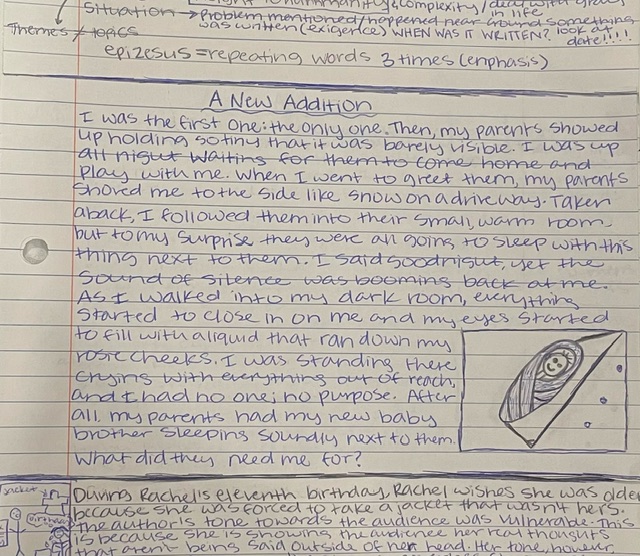 complexity/
Situation → problem mentioned/happened near around something in life
was written (exigence) WHEN WAS IT WRITTEN? look at date!!!!
Themes / topics
epizesus = repeating words 3 times (enphasis)
A New Addition
I was the first one: the only one. Then, my parents showed
up holding so tiny that it was barely visible. I was up
all night waiting for them to come home and
play with me. When I went to greet them, my parents
shoved me to the side like snow on a driveway. Taken
aback, I followed them into their small, warm room,
but to my surprise they were all going to sleep with this
thing next to them. I said goodnight, yet the
sound of silence was booming back at me.
As I walked into my dark room, everything
started to close in on me and my eyes started
to fill with a liquid that ran down my
rosie cheeks. I was standing there
crying with everything out of reach,
and I had no one; no purpose. After
all, my parents had my new baby
brother sleeping soundly next to them.
What did they need me for?
jacket
During Rachel's eleventh birthday, Rachel wishes she was older
because she was forced to take a jacket that wasn't hers.
The author's tone towards the audience was vulnerable. This
is because she is showing the audience her real thoughts
that aren't being said outside of her head. Her tone, however